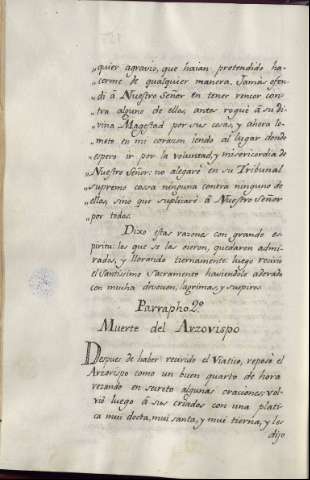 „quier agravio, que haian pretendido ha-
„cerme de qualquier manera. Jamàs ofen-
„di â Nuestro Señor en tener rencor con-
„tra alguno de ellos, antes rogué â su Di-
„vina Magestad por sus cosas, y ahora le-
„meto en mi corazon iendo al lugar donde
„espero ir por la voluntad, y misericordia de
„Nuestro Señor: no alegaré en su Tribunal
„supremo cossa ninguna contra ninguno de
„ellos, sino que suplicaré â Nuestro Señor
„por todos.
Dixo estas razones con grande es-
piritu: los que se las oieron, quedaron admi-
rados, y llorando tiernamente: luego recivió
el Santissimo Sacramento haviendole adorado
con mucha devocion, lagrimas, y suspiros.
Parrapho 2º
Muerte del Arzovispo
Despues de haber recivido el Viatico, reposó el
Arzovispo como un buen quarto de hora
rezando en secreto algunas oraciones: vol-
vió luego â sus criados con una plati-
ca mui docta, mui santa, y mui tierna, y les
dijo